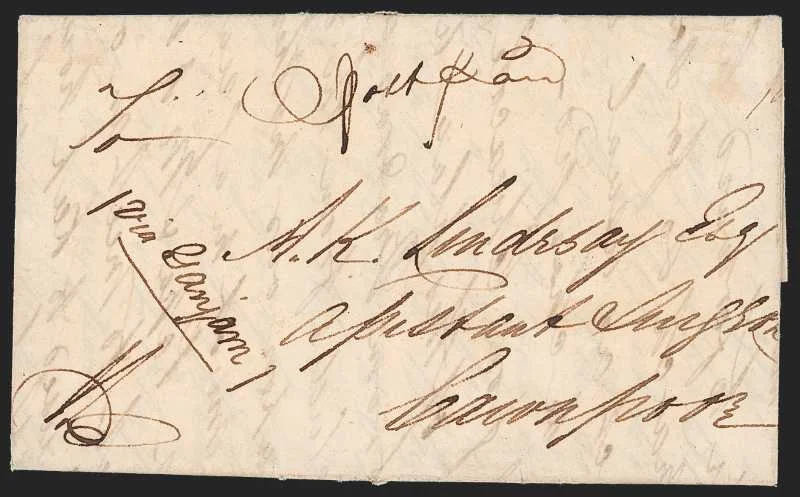 Post Paid
To
A. K. Lindesay Esq
Assistant Surgeon
Cawnpoor
via Ganjam